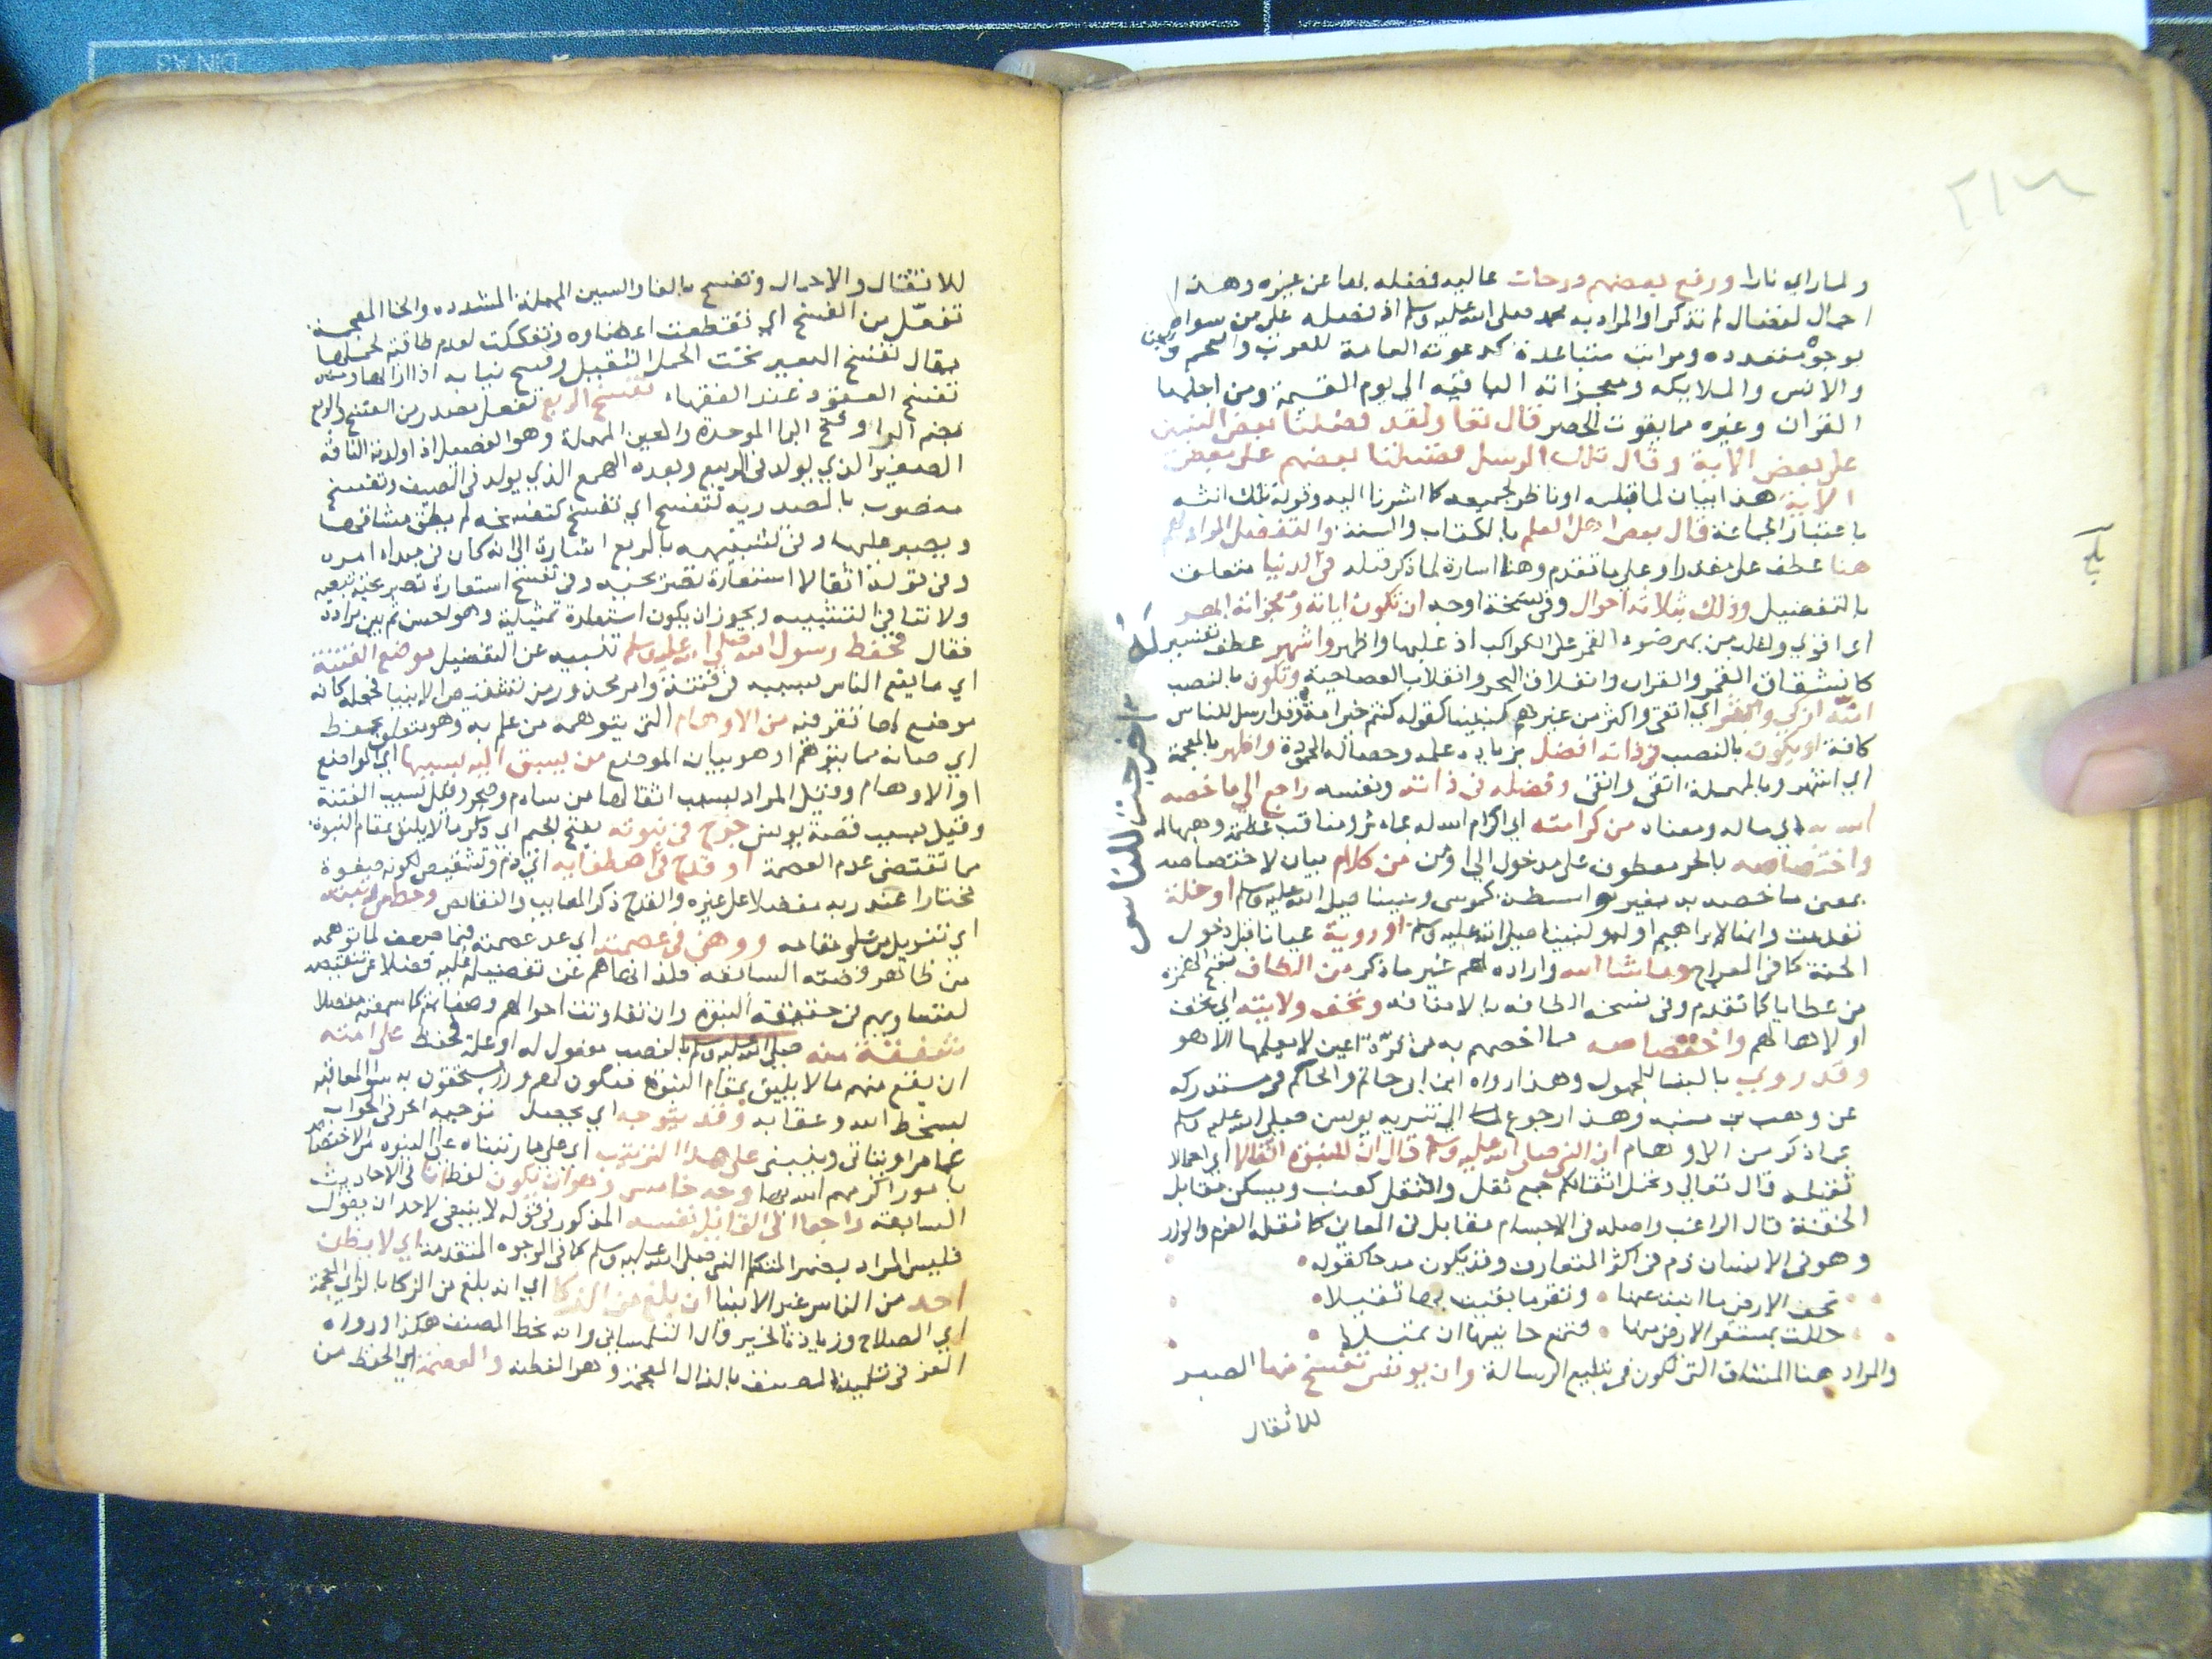 ولما رأي نارا ورفع بعضهم درجات عاليه فضله بها عن غيره وهذا
اجمال لفضال لم تذكر او المراد به محمد صلى الله عليه وسلم اذ فضله على من سواه
بوجوه متعدده ومراتب متباعدة كدعوته العامة للعرب والعجم والجن
والانس والملايكه ومعجزاته الباقيه الى يوم القيمة ومن اجلها
القران وغيره مما يفوت الحصر قال تعا ولقد فضلنا بعض النبيين
على بعض الاية وقال تلك الرسل فضلنا بعضهم على بعض
الاية هذا بيان لما قبله او ناظر لجميعه كما اشرنا اليه وقوله تلك انثه
باعتبار الجماعة قال بعض اهل العلم بالكتاب والسنة والتفضيل المراد لهم
هنا عطف على مقدر او على ما تقدم وهنا اشارة لما ذكر قبله في الدنيا متعلق
بالتفضيل وذلك بثلاثة احوال وفي نسخة اوجه ان تكون اياته ومعجزاته ابهر
اي اقوي واغلب من بهر ضوء القمر على الكواكب اذ غلبها واظهر واشهر عطف تفسير له
كانشقاق القمر والقران وانفلاق البحر وانقلاب العصا حية وتكون بالنصب
امته ازكي واكثر اي اتقى واكثر من غيرهم كنبينا كقوله كنتم خير امة اخرجت للناس وقد ارسل للناس
كافة او يكون بالنصب في ذاته افضل بزيادة علمه وخصاله الحميدة واظهر بالمعجمة
اي اشهر وبالمهملة اتقى وانقى وفضله في ذاته ونفسه راجع الي ما خصه
الله به اي ماله ومعناه من كرامته اي اكرام الله له بمآثر ومناقب عظيمة وهبها له
واختصاصه بالجر معطوف على مدخول الى او من من كلام بيان لاختصاصه
بمعنى ما خصه به بغير واسطة كموسى ونبينا صلى الله عليه وسلم او خلة
تقدمت وانها لابراهيم اوله ولنبينا صلى الله عليه وسلم او روية عيانا قبل دخول
الجنة كما في المعراج وما شا الله واراده لهم غير ما ذكر من الطاف بفتح الهمزة
من عطايا كما تقدم وفي نسخه الطافه بالاضافه وتحف ولايته اي تحف
اولاها لهم واختصاصه مما اخصهم به من قرة اعين لا يعلمها الا هو
وقد روي بالبنا للمجهول وهذا رواه ابن ابي حاتم والحاكم في مستدركه
عن وهب بن منبه وهذا رجوع الى تنزيه يونس صلى الله عليه وسلم
عما ذكر من الاوهام ان النبي صلى الله عليه وسلم قال ان للنبوة اثقالا اي احمالا
ثقيلة قال تعالي وتحمل اثقالكم جمع ثقل والثقل كعنب ويسكن مقابل
الخفة قال الراغب واصله في الاجسام مقابل في المعاني كاثقله الغرم والوزر
وهو في الانسان ذم في اكثر المتعارف وقد يكون مدحا كقوله
تخف الارض ما انبت عنها وتقر ما بقيت بها ثقيلا
حللت بمستقر الارض منها فتمنع جانبيها ان تميلا
والمراد هنا المشاق التي تكون في تبليغ الرسالة وان يونس تفسخ منها الصبر
للاثقال
بلغ
للاثقال والاحمال وتفسخ بالفا والسين المهملة المشدده والخا المعجمة
تفعّل من الفسخ اي تقطعت اعضاوه وتفككت لعدم طاقته لحملها
يقال تفسخ البعير تحت الحمل الثقيل وفسخ ثيابه اذا ازالها ومنه
تفسخ العقود عند الفقهاء تفسخ الربع تفعل مصدر من الفسخ والربع
بضم الرا وفتح البا الموحدة والعين المهملة وهو الفصيل اذ اولدته الناقة
الصغير الذي يولد في الربيع وبعده الهبع الذي يولد في الصيف وتفسخ
منصوب بالمصدرية لتفسخ اي تفسخ كتفسخه لم يطق مشاقها
ويصبر عليها وفي تشبيهه بالربع اشارة الى انه كان في مبداء امره
وفي قوله اثقالا استعارة تصريحية وفي تفسخ استعارة تصريحية تبعيه
ولا تنافي التشبيه ويجوز ان يكون استعارة تمثيلية وهو احسن ثم بين مراده
فقال فحفظ رسول الله صلى الله عليه وسلم بنهيه عن التفضيل موضع الفتنة
اي ما يقع الناس بسببه في فتنة وامر محذور من تنقيص الانبيا فجعله كانه
موضع لها تقر فيه من الاوهام التي يتوهمه من علم به وهو متعلق بحفظ
اي صانه مما يتوهم او هو بيان للموضع من يسبق اليه بسببها اي المواضع
او الاوهام وقيل المراد بسبب اثقالها من سام وضجر وقيل بسبب الفتنة
وقيل بسبب قصة يونس جرح في نبوته بفتح الجيم اي ذكر ما لا يليق بمقام النبوة
مما تقتضي عدم العصمة او قدح في اصطفايه اي ذم وتنقيص لكونه صفوة
مختارا عند ربه مفضلا على غيره والقدح ذكر المعايب والنقائص وحط من رتبته
اي تنزيل من علو مقامه ووهن في عصمته اي عد عصمته فيها ضعف لما توهمه
من ظاهر قصته السابقه فلذا نهاهم عن تفضيله عليه فضلا عن تنقيصه
لتساويهم في حقيقة النبوة وان تفاوتت احوالهم وصفاتهم كما سمعته مفصلا
شفقة منه صلى الله عليه وسلم بالنصب مفعول له او علة لحفظ على امته
ان يقع منهم ما لا يليق بمقام النبوة فيكون لهم وزر يستحقون به المعاقبة
لسخط الله وعقابه وقد يتوجه اي يجعل توجيه اخر في الجواب
عما مر او يتاتى ويبنى على هذا الترتيب اي على ما رتبناه على النبوة من الاختصاص
بامور اكرمهم الله بها وجه خامس وهو ان يكون لفظ انا في الاحاديث
السابقة راجعا الى القائل نفسه المذكور في قوله لا ينبغي لاحد ان يقول
فليس المراد بضمير المتكلم النبي صلى الله عليه وسلم كما في الوجوه المتقدمة اي لا يظن
احد من الناس غير الانبيا ان بلغ من الذكا اي ان بلغ من الزكا بالزاي المعجمة
اي الصلاح وزيادة الخير وقال التلمساني وانه بخط المصنف هكذا ورواه
العزفي تلميذ المصنف بالذال المعجمة وهو الفطنة والعصمة اي الحفظ من